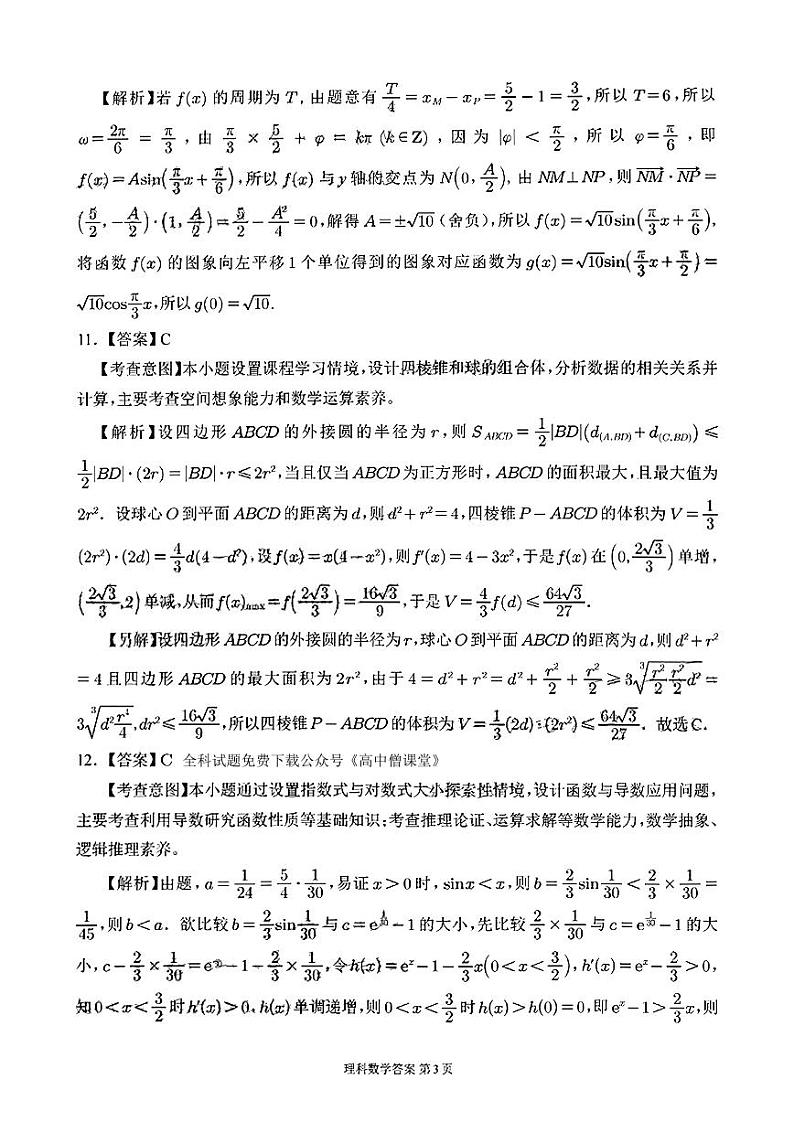 【解析】若 f(x) 的周期为 T, 由题意有 T/4 = x_M − x_P = 5/2 − 1 = 3/2, 所以 T=6, 所以
ω = 2π/6 = π/3 , 由 π/3 × 5/2 + φ = kπ (k∈Z) , 因为 |φ| < π/2 , 所以 φ= π/6 , 即
f(x)=Asin(π/3 x + π/6), 所以 f(x) 与 y 轴的交点为 N(0, A/2), 由 NM⊥NP, 则 NM→ · NP→ =
(5/2, −A/2)·(1, A/2) = 5/2 − A²/4 = 0, 解得 A=±√10 (舍负), 所以 f(x)=√10sin(π/3 x + π/6),
将函数 f(x) 的图象向左平移 1 个单位得到的图象对应函数为 g(x)=√10sin(π/3 x + π/2) =
√10cos π/3 x, 所以 g(0)=√10.
11.【答案】C
【考查意图】本小题设置课程学习情境,设计四棱锥和球的组合体,分析数据的相关关系并
计算,主要考查空间想象能力和数学运算素养。
【解析】设四边形 ABCD 的外接圆的半径为 r, 则 S_ABCD = 1/2 |BD|(d_(A,BD) + d_(C,BD)) ≤
1/2 |BD|·(2r)=|BD|·r≤2r², 当且仅当 ABCD 为正方形时, ABCD 的面积最大, 且最大值为
2r². 设球心 O 到平面 ABCD 的距离为 d, 则 d²+r²=4, 四棱锥 P−ABCD 的体积为 V= 1/3
(2r²)·(2d)= 4/3 d(4−d²), 设 f(x)=x(4−x²), 则 f′(x)=4−3x², 于是 f(x) 在 (0, 2√3/3) 单增,
(2√3/3, 2) 单减, 从而 f(x)_max = f(2√3/3) = 16√3/9, 于是 V= 4/3 f(d) ≤ 64√3/27.
【另解】设四边形 ABCD 的外接圆的半径为 r, 球心 O 到平面 ABCD 的距离为 d, 则 d²+r²
=4 且四边形 ABCD 的最大面积为 2r², 由于 4=d²+r²=d²+ r²/2 + r²/2 ≥ 3∛(r²/2 r²/2 d²) =
3∛(d² r⁴/4), dr² ≤ 16√3/9, 所以四棱锥 P−ABCD 的体积为 V= 1/3 (2d)·(2r²) ≤ 64√3/27. 故选 C.
12.【答案】C 全科试题免费下载公众号《高中僧课堂》
【考查意图】本小题通过设置指数式与对数式大小探索性情境,设计函数与导数应用问题,
主要考查利用导数研究函数性质等基础知识;考查推理论证、运算求解等数学能力,数学抽象、
逻辑推理素养。
【解析】由题, a= 1/24 = 5/4 · 1/30, 易证 x>0 时, sinx<x, 则 b= 2/3 sin 1/30 < 2/3 × 1/30 =
1/45, 则 b<a. 欲比较 b= 2/3 sin 1/30 与 c=e^(1/30) −1 的大小, 先比较 2/3 × 1/30 与 c=e^(1/30) −1 的大
小, c− 2/3 × 1/30 = e^(1/30) −1− 2/3 × 1/30, 令 h(x)=e^x −1− 2/3 x(0<x< 3/2), h′(x)=e^x − 2/3 >0,
知 0<x< 3/2 时 h′(x)>0, h(x) 单调递增, 则 0<x< 3/2 时 h(x)>h(0)=0, 即 e^x −1> 2/3 x, 则
理科数学答案 第 3 页